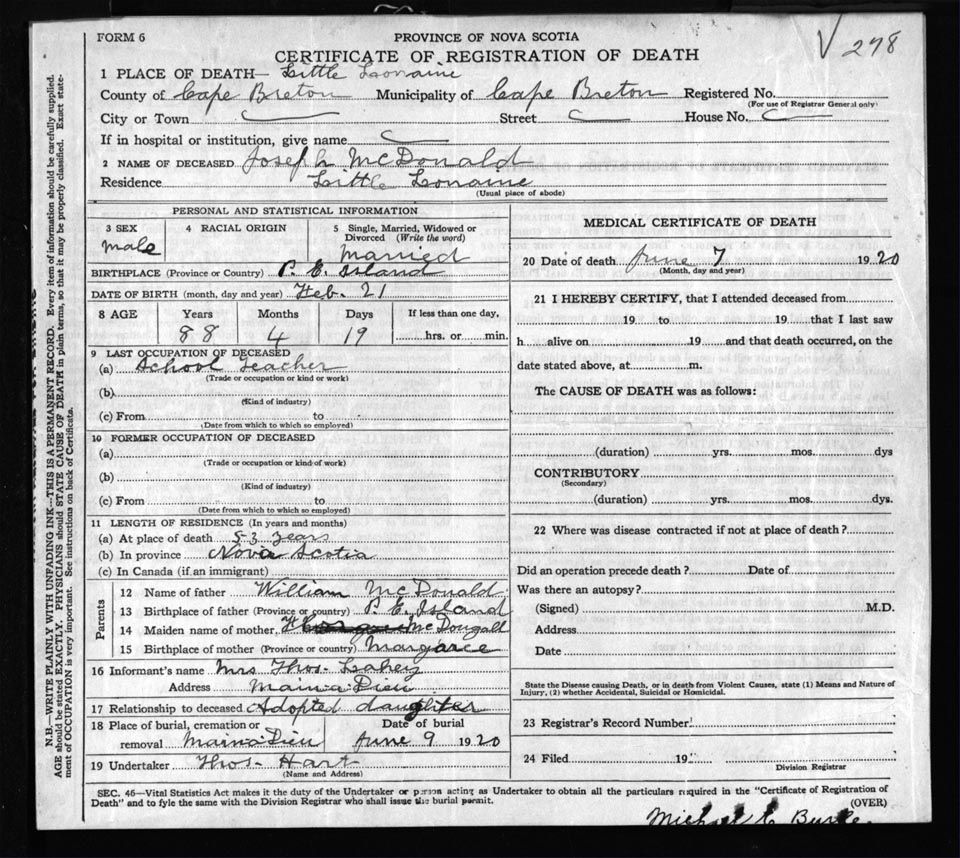 FORM 6
PROVINCE OF NOVA SCOTIA
CERTIFICATE OF REGISTRATION OF DEATH
278
1 PLACE OF DEATH— Little Lorraine
County of Cape Breton Municipality of Cape Breton Registered No.
(For use of Registrar General only)
City or Town Street House No.
If in hospital or institution, give name
2 NAME OF DECEASED Joseph McDonald
Residence Little Lorraine
(Usual place of abode)
PERSONAL AND STATISTICAL INFORMATION
3 SEX 4 RACIAL ORIGIN 5 Single, Married, Widowed or
Divorced (Write the word)
Male Married
BIRTHPLACE (Province or Country) P. E. Island
DATE OF BIRTH (month, day and year) Feb. 21
8 AGE Years Months Days If less than one day,
88 4 19 hrs. or min.
9 LAST OCCUPATION OF DECEASED
(a) School Teacher
(Trade or occupation or kind or work)
(b)
(Kind of industry)
(c) From to
(Date from which to which so employed)
10 FORMER OCCUPATION OF DECEASED
(a)
(Trade or occupation or kind of work)
(b)
(Kind of industry)
(c) From to
(Date from which to which so employed)
11 LENGTH OF RESIDENCE (In years and months)
(a) At place of death 53 years
(b) In province Nova Scotia
(c) In Canada (if an immigrant)
Parents
12 Name of father William McDonald
13 Birthplace of father (Province or country) P. E. Island
14 Maiden name of mother McDougall
15 Birthplace of mother (Province or country) Margaree
16 Informant's name Mrs Thos. Lahey
Address Main a Dieu
17 Relationship to deceased Adopted daughter
18 Place of burial, cremation or Date of burial
removal Main a Dieu June 9 1920
19 Undertaker Thos. Hart
(Name and Address)
MEDICAL CERTIFICATE OF DEATH
20 Date of death June 7 1920
(Month, day and year)
21 I HEREBY CERTIFY, that I attended deceased from
19 to 19 that I last saw
h alive on 19 and that death occurred, on the
date stated above, at m.
The CAUSE OF DEATH was as follows:
(duration) yrs. mos. dys
CONTRIBUTORY
(Secondary)
(duration) yrs. mos. dys.
22 Where was disease contracted if not at place of death?
Did an operation precede death? Date of
Was there an autopsy?
(Signed) M.D.
Address
Date
State the Disease causing Death, or in death from Violent Causes, state (1) Means and Nature of
Injury, (2) whether Accidental, Suicidal or Homicidal.
23 Registrar's Record Number
24 Filed 19
Division Registrar
SEC. 46—Vital Statistics Act makes it the duty of the Undertaker or person acting as Undertaker to obtain all the particulars required in the "Certificate of Registration of
Death" and to fyle the same with the Division Registrar who shall issue the burial permit.
(OVER)
Michael C Burke
N.B.—WRITE PLAINLY WITH UNFADING INK—THIS IS A PERMANENT RECORD. Every item of information should be carefully supplied.
AGE should be stated EXACTLY, PHYSICIANS should STATE CAUSE OF DEATH in plain terms, so that it may be properly classified. Exact state-
ment of OCCUPATION is very important. See instructions on back of Certificate.